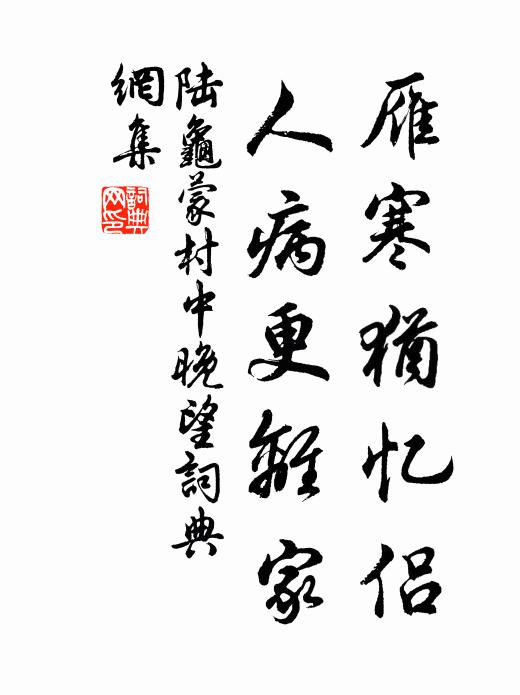 雁寒犹忆侣
人病更離家
陆龜蒙村中晚望詞典
網集
詞典网印